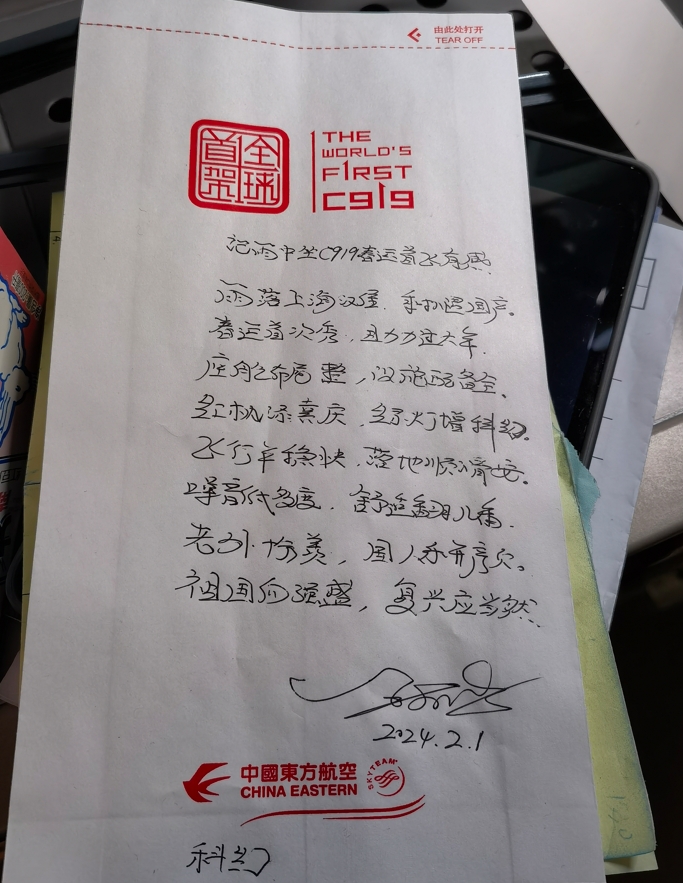 由此处打开
TEAR OFF
全球
首架
THE
WORLD'S
FIRST
C919
记雨中坐C919春运首飞有感
雨落上海汉堡,乘机遇国产。
春运首次秀,助力过大年.
座舱布局整,设施配备全。
红机添喜庆,绿灯增科幻。
飞行平稳快,落地顺滑安。
噪音低多度,舒适翻几番.
老外怜羡,国人亦开颜。
祖国向强盛,复兴应当然.
2024.2.1
中國東方航空
CHINA EASTERN
SKYTEAM
科幻